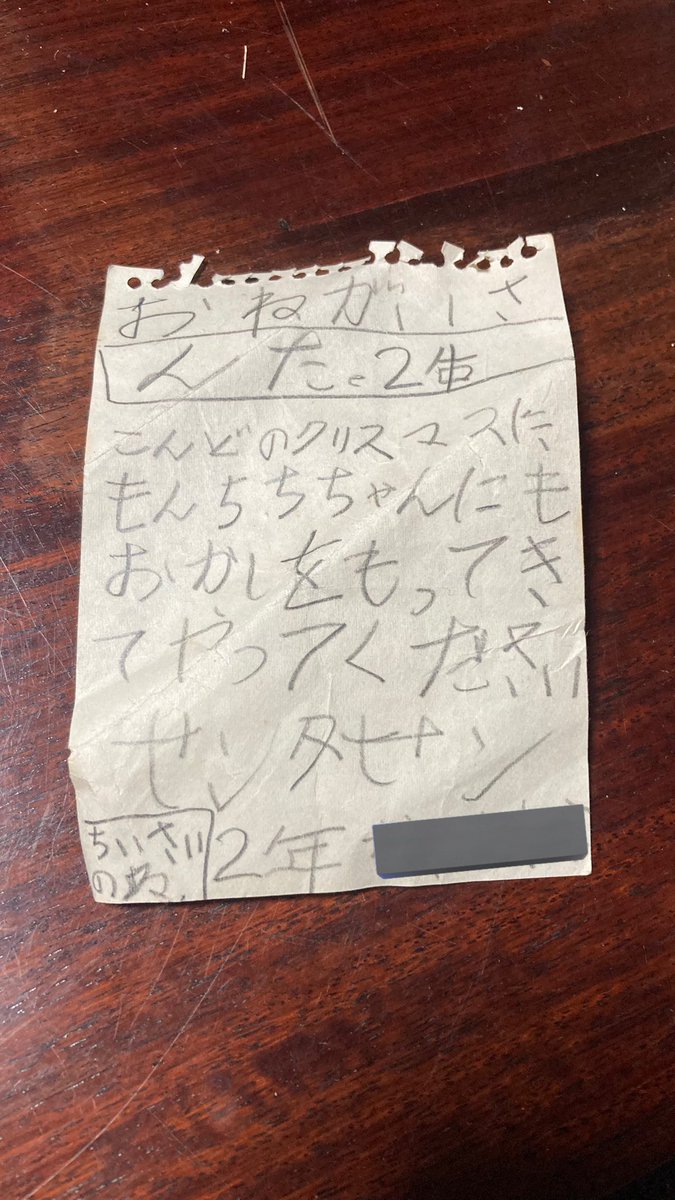 おねがいさ
んた。2生
こんどのクリスマスに
もんちちちゃんにも
おかしをもってき
てやってください
せンタせン
ちいさい
の
2年